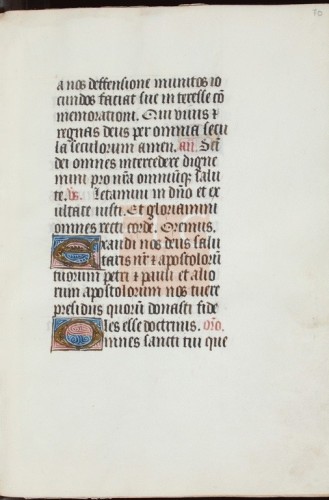 70
a nos deffensione munitos io
cundos faciat sue in teresse cō
memorationi. Qui vivis ⁊
regnas deus per omnia secu
la seculorum amen. añ. Sctī
dei omnes intercedere digne
mini pro nr̄a omniūq; salu
te. v̄s. Letamini in dn̄o et ex
ultate iusti. Et gloriamini
omnes recte corde. Oremus.
Exaudi nos deus salu
taris nr̄ ⁊ apostolorū
tuorum petri ⁊ pauli et alio
rum apostolorum nos tuere
presidiis quorū donasti fide
les esse doctrinis. oro.
Omnes sancti tui que